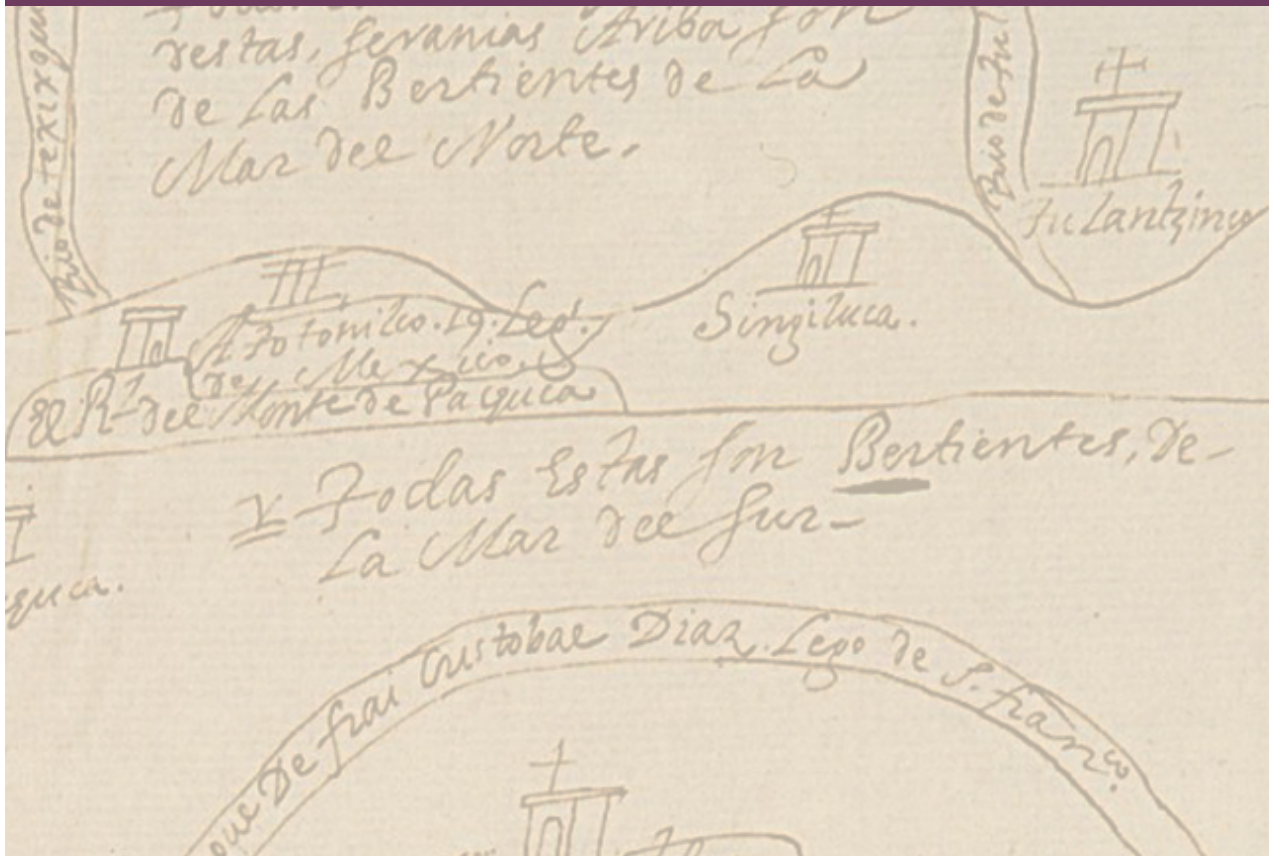 destas, seranias Ariba son
de Las Bertientes de La
Mar del Norte.
Rio de texixqui
Rio de tul
tulantzinco
Singiluca.
Atotonilco. 19. Leg.s
de Mexico.
El R.l del Monte de Pachuca
Y Todas Estas son Bertientes, de-
La Mar del Sur-
que De frai Cristobal Diaz. Lego de S. franco.